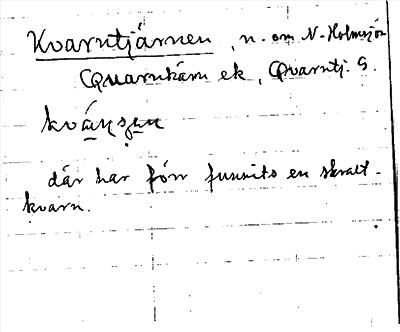 Kvarntjärnen, n. om N. Holmsjön
Qvarnkärn ek, Qvarntj. G.
där har förr funnits en skvalt-
kvarn.